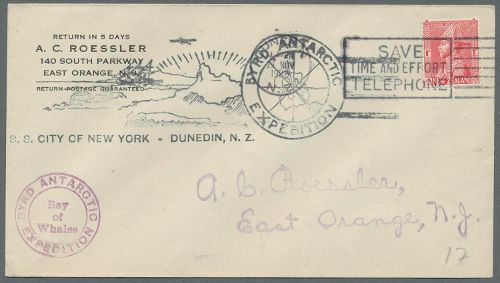 RETURN IN 5 DAYS
A. C. ROESSLER
140 SOUTH PARKWAY
EAST ORANGE, N. J.
RETURN POSTAGE GUARANTEED
S. S. CITY OF NEW YORK - DUNEDIN, N. Z.
BYRD ANTARCTIC
EXPEDITION
NOV
SAVE
TIME AND EFFORT
TELEPHONE
BYRD ANTARCTIC
Bay
of
Whales
EXPEDITION
A. C. Roessler,
East Orange, N. J.
17